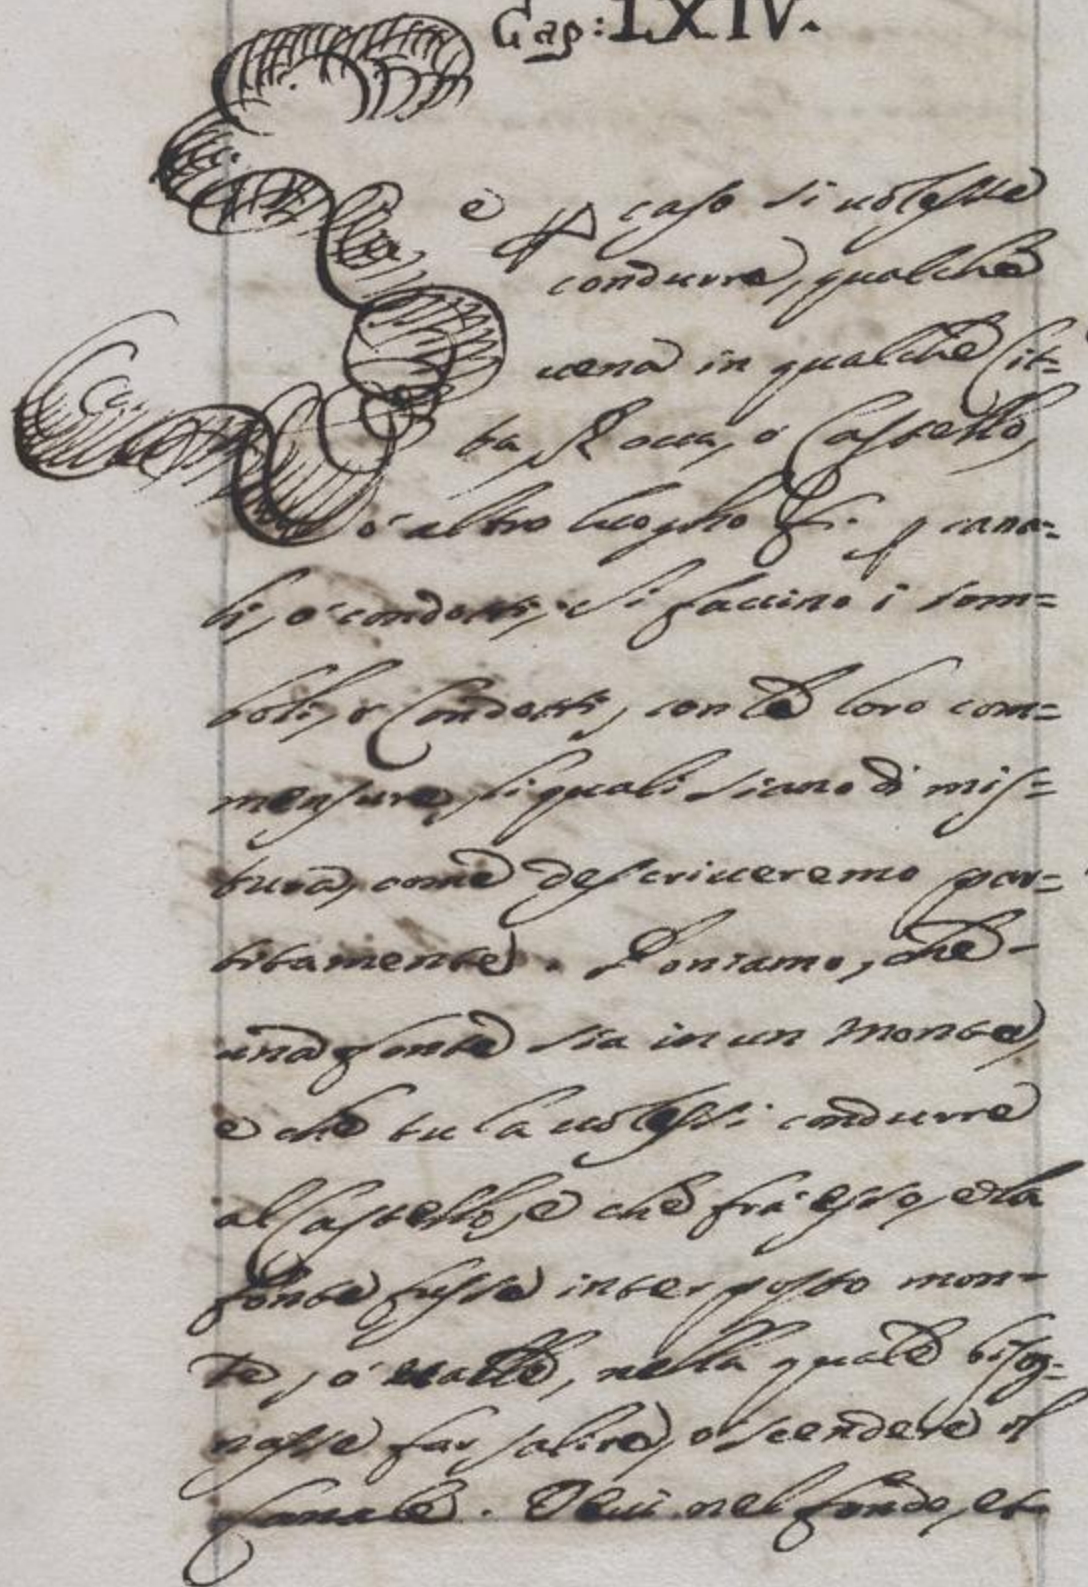 Cap: LXIV.
Se ꝑ caso si uolesse
condurre, qualche
uena in qualche Cit=
ta, Rocca, o Castello,
o' altro luogho ꝑ cana=
li, o' condotti, si faccino i tom=
boli, o Condotti, con le loro com=
mensure, li quali siano di mis=
tura, come descriueremo par=
titamente. Poniamo, che
una fonte sia in un monte,
e che tu la uolessi condurre
al Castello, e che fra' esso, e la
fonte fusse interposto mon=
te, o' ualle, nella quale bisog=
nasse far salire, o scendere il
Canale. Deui nel fondo, et